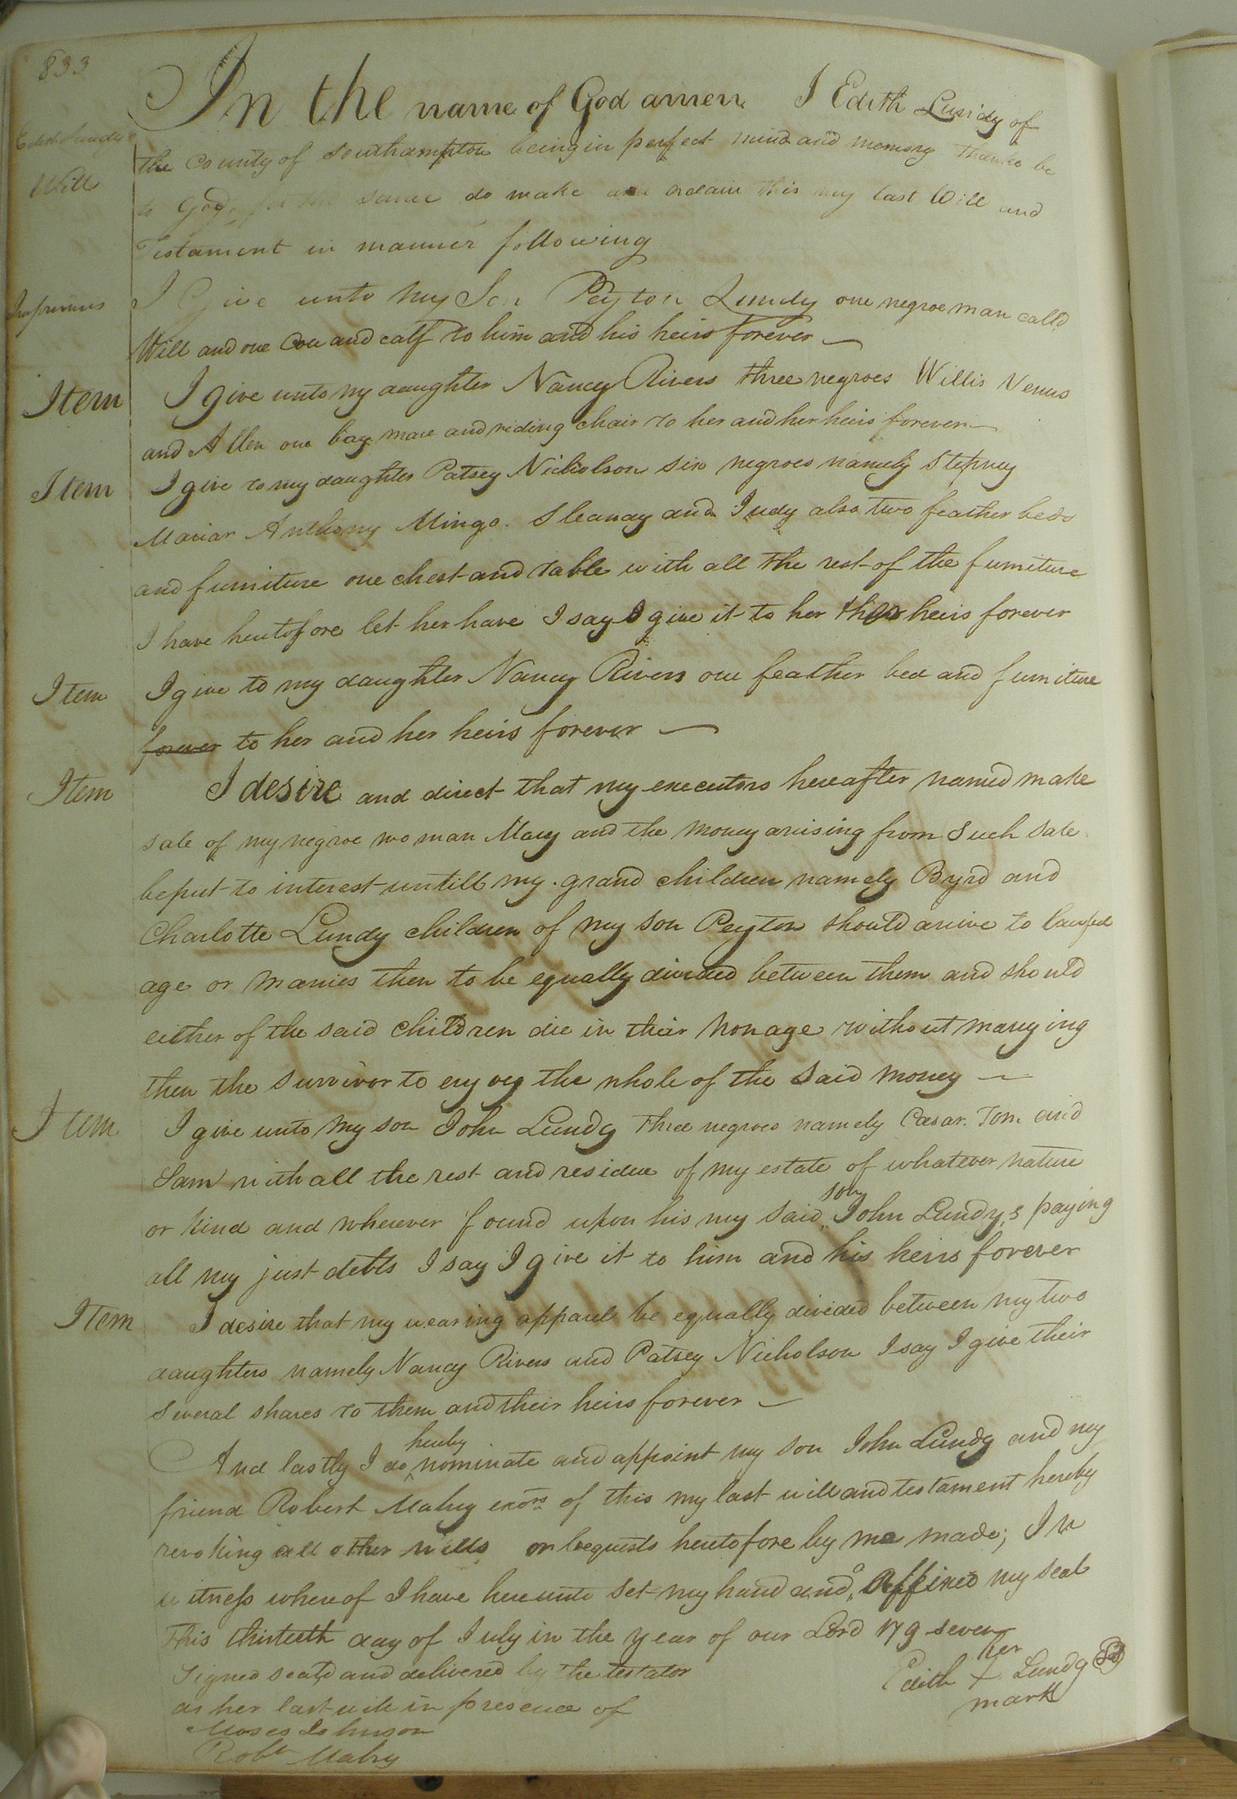 833
In the name of God amen I Edith Lundy of
Edith Lundys
the County of Southampton being in perfect mind and memory thanks be
Will
to God for the same do make and ordain this my last Will and
Testament in manner following
Imprimus I Give unto My Son Peyton Lundy one negroe man calld
Will and one Cow and calf to him and his heirs forever
Item I give unto my daughter Nancy Rivers three negroes Willis Venus
and Allen one bay mare and riding chair to her and her heirs forever
Item I give to my daughter Patsey Nicholson six negroes namely Stepney
Mariar Anthony Mingo. Sleanay and Judy also two feather beds
and furniture one chest and table with all the rest of the furniture
I have heutofore let her have I say I give it to her heirs forever
Item I give to my daughter Nancy Rivers one feather bed and furniture
forever to her and her heirs forever
Item I desire and direct that my executors hereafter named make
sale of my negroe woman Mary and the money arising from such sale
be put to interest untill my grand children namely Byrd and
Charlotte Lundy children of my son Peyton should arive to lawful
age or marries then to be equally divided between them and should
either of the said children die in their nonage without marrying
then the survivor to enjoy the whole of the said money
Item I give unto my son John Lundy three negroes namely Casar. Tom and
Sam with all the rest and residue of my estate of whatever nature
or kind and wherever found upon his my said son John Lundy,s paying
all my just debts I say I give it to him and his heirs forever
Item I desire that my wearing apparel be equally divided between my two
daughters namely Nancy Rivers and Patsey Nicholson I say I give their
several shares to them and their heirs forever
And lastly I do hereby nominate and appoint my son John Lundy and my
friend Robert Mabry exors of this my last will and testament hereby
revoking all other wills or bequests heutofore by me made; In
witness whereof I have hereunto set my hand and affixed my seal
this thirteeth day of July in the year of our Lord 179 seven
Signed seald and delivered by the testator
as her last will in presence of
Moses Johnson
Robt Mabry
her
Edith + Lundy Sl
mark